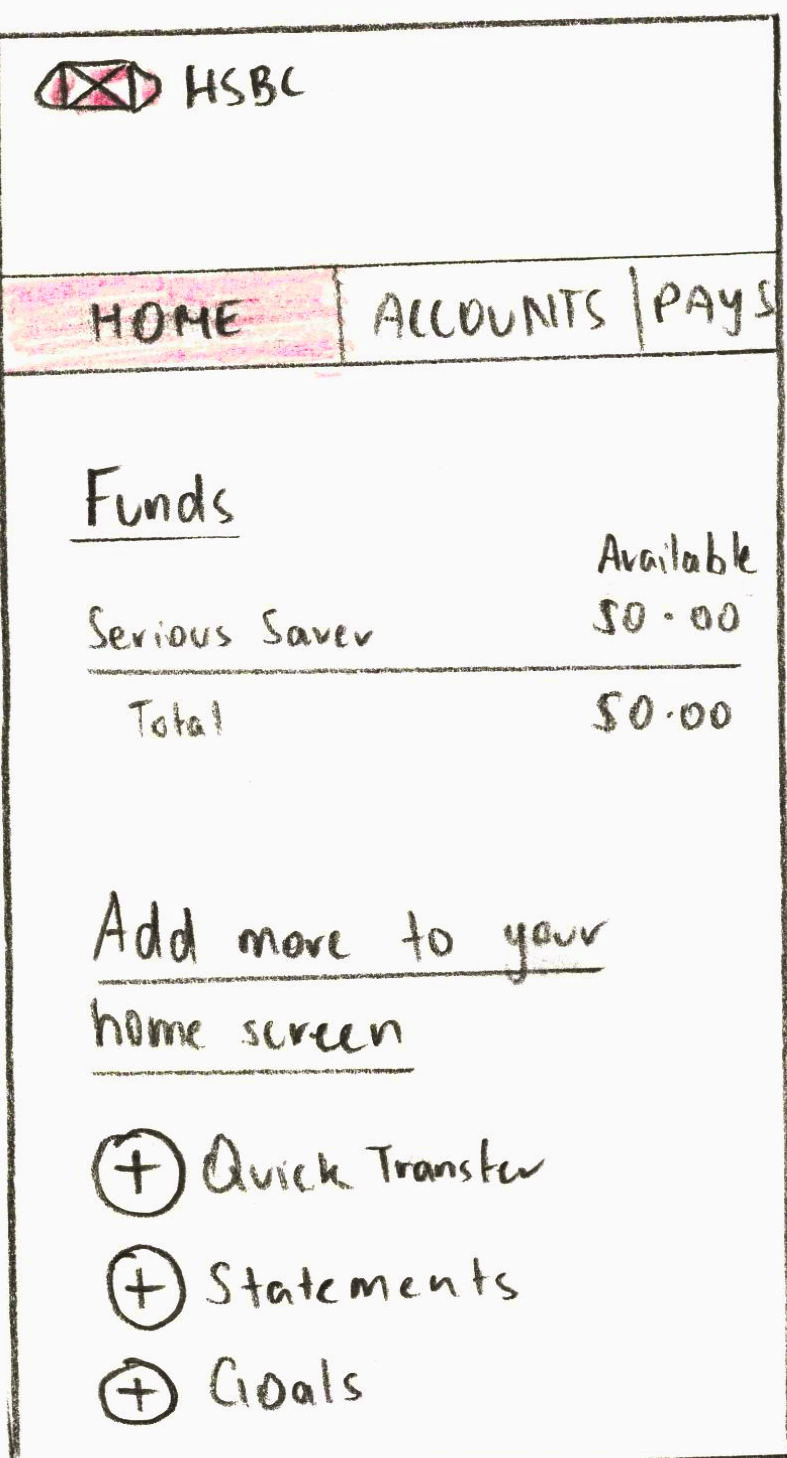 HSBC
HOME ACCOUNTS PAYS
Funds
Available
Serious Saver $0.00
Total $0.00
Add more to your
home screen
+ Quick Transfer
+ Statements
+ Goals